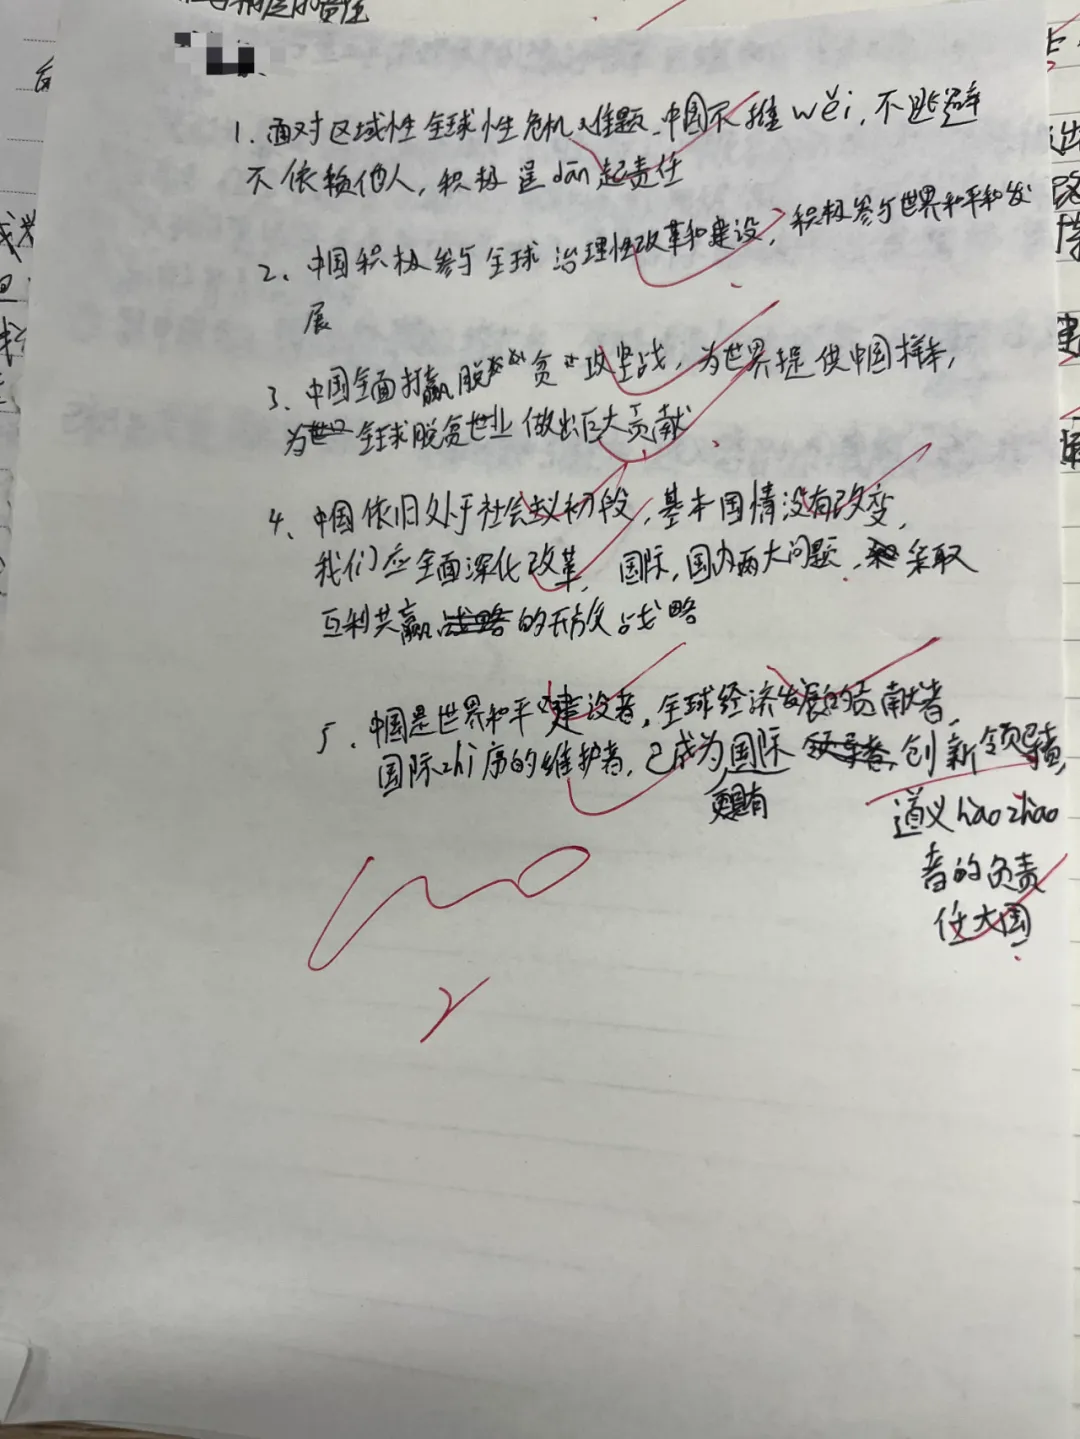 1. 面对区域性全球性危机难题、中国不推wěi,不逃避
不依赖他人,积极dān起责任
2、中国积极参与全球治理性改革和建设,积极参与世界和平和发
展
3、中国全面打赢脱贫攻坚战,为世界提供中国样本,
为全球脱贫世业做出巨大贡献
4、中国依旧处于社会义初段,基本国情没有改变,
我们应全面深化改革,国际,国内两大问题,采取
互利共赢的开放战略
5、中国是世界和平建设者,全球经济发展的贡献者,
国际zhì序的维护者,已成为国际创新领导者,
更具有
道义hào zhào
者的负责
任大国